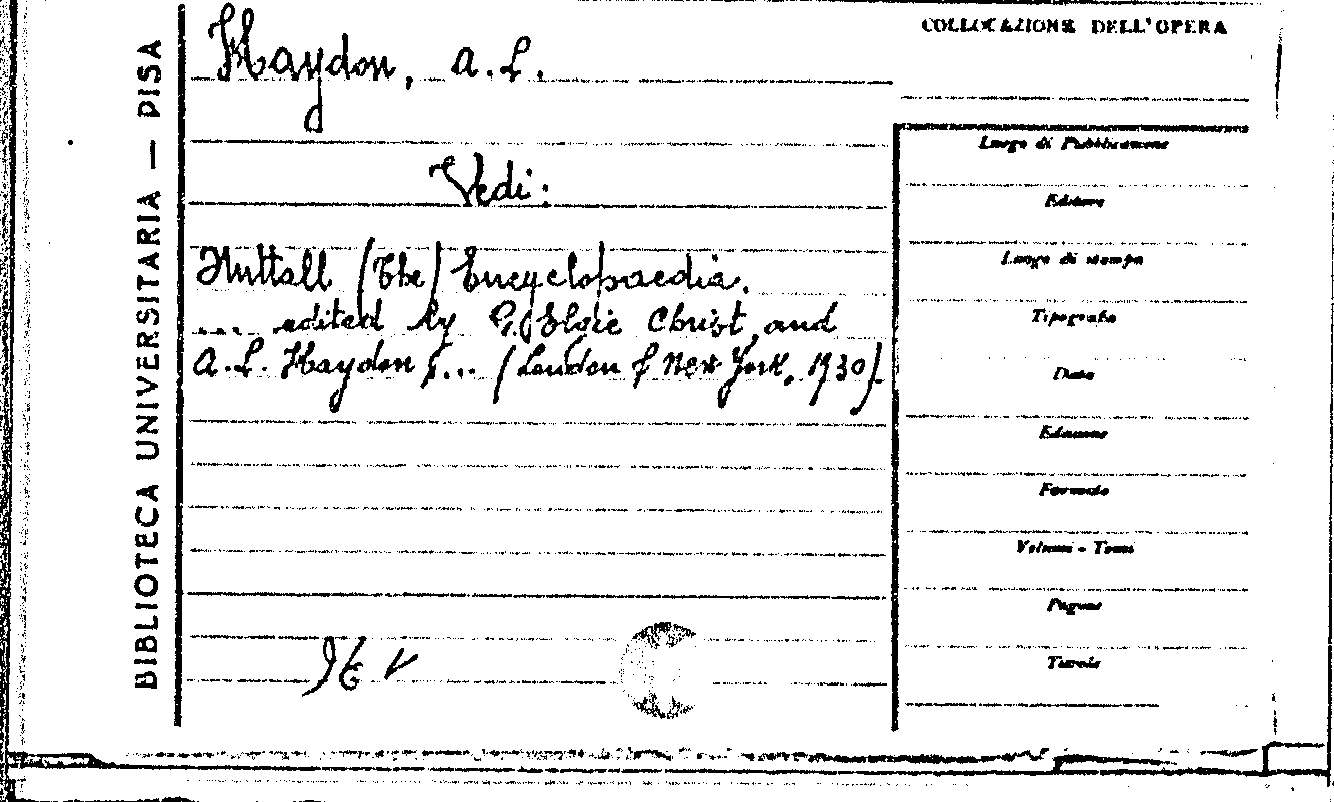 BIBLIOTECA UNIVERSITARIA — PISA
Haydon, A. L.
Vedi:
Nuttall (The) Encyclopaedia.
... edited by G. Elsie Christ and
A. L. Haydon ... (London & New York, 1930).
COLLOCAZIONE DELL'OPERA
Luogo di Pubblicazione
Editore
Luogo di stampa
Tipografia
Data
Edizione
Formato
Volumi - Tomi
Pagine
Tavole